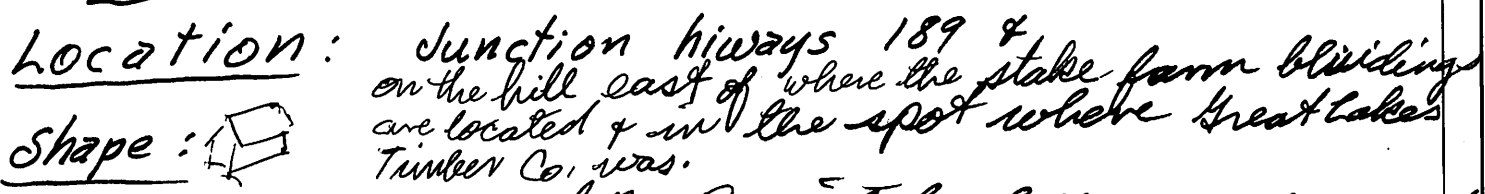 Location: Junction hiways 189 &
on the hill east of where the stake farm bluidings
are located & in the spot where Great Lakes
Shape:
Timber Co. was.